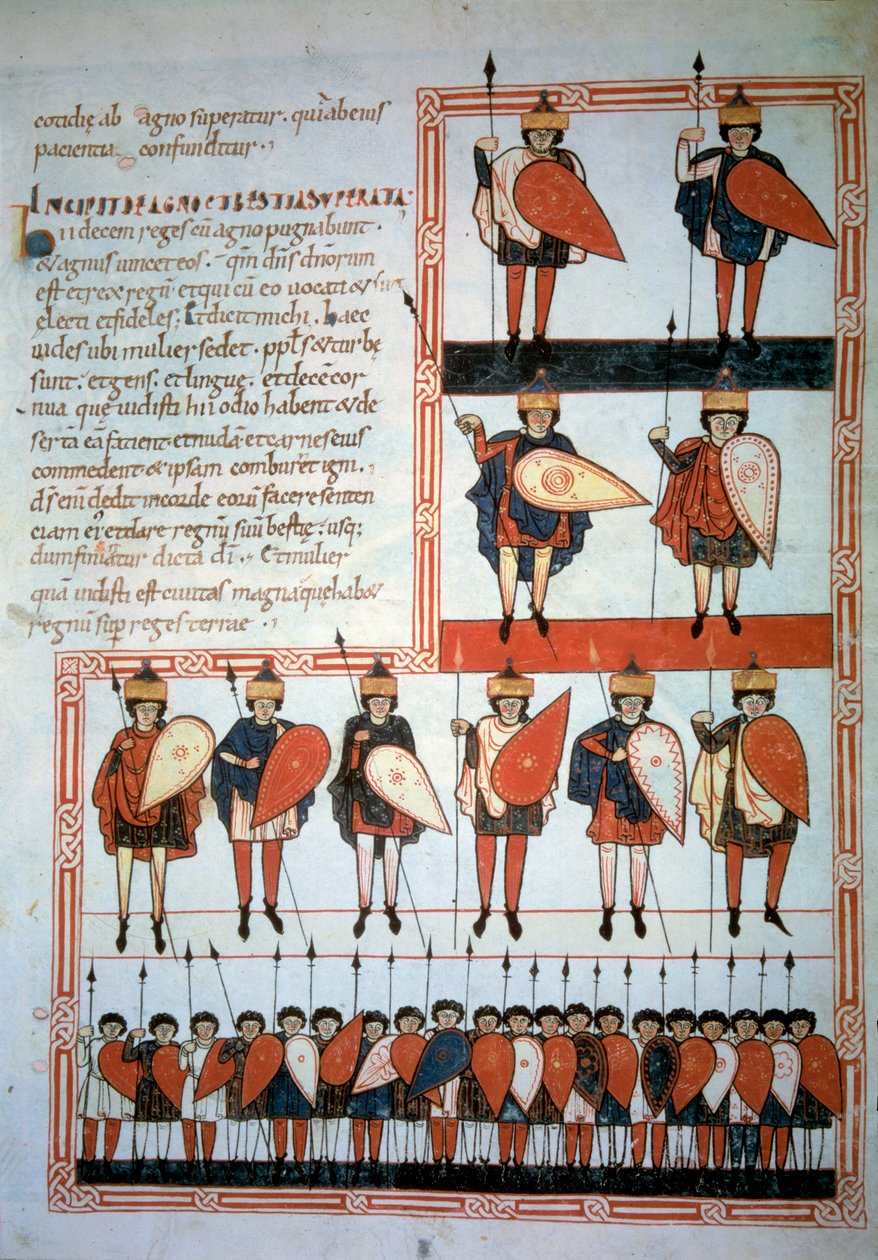 cotidię ab agno superatur. quia ab eius
pacientia confunditur.
INCIPIT DE AGNO ET BESTIA SUPERATA.
hii decem reges cū agno pugnabunt.
& agnus uincet eos. qm̄ dn̄s dn̄orum
est et rex regū. et qui cū eo uocati & sunt
ęlecti et fideles; Et dicit michi. haec
uides ubi mulier sedet. ppl̄s & turbę
sunt. et gens. et linguę. et decē cor
nua que uidisti hii odio habent & de
sertā eā facient. et nudā. et carnes eius
commedent. & ipsam comburēt igni.
d̄s enī dedit in corde eorū facere senten
ciam eiꝰ et dare regnū suū bestię. usq;
dum finiatur dicta dī. Et mulier
quā uidisti est ciuitas magna quę hab&
regnū sup̄ reges terrae.